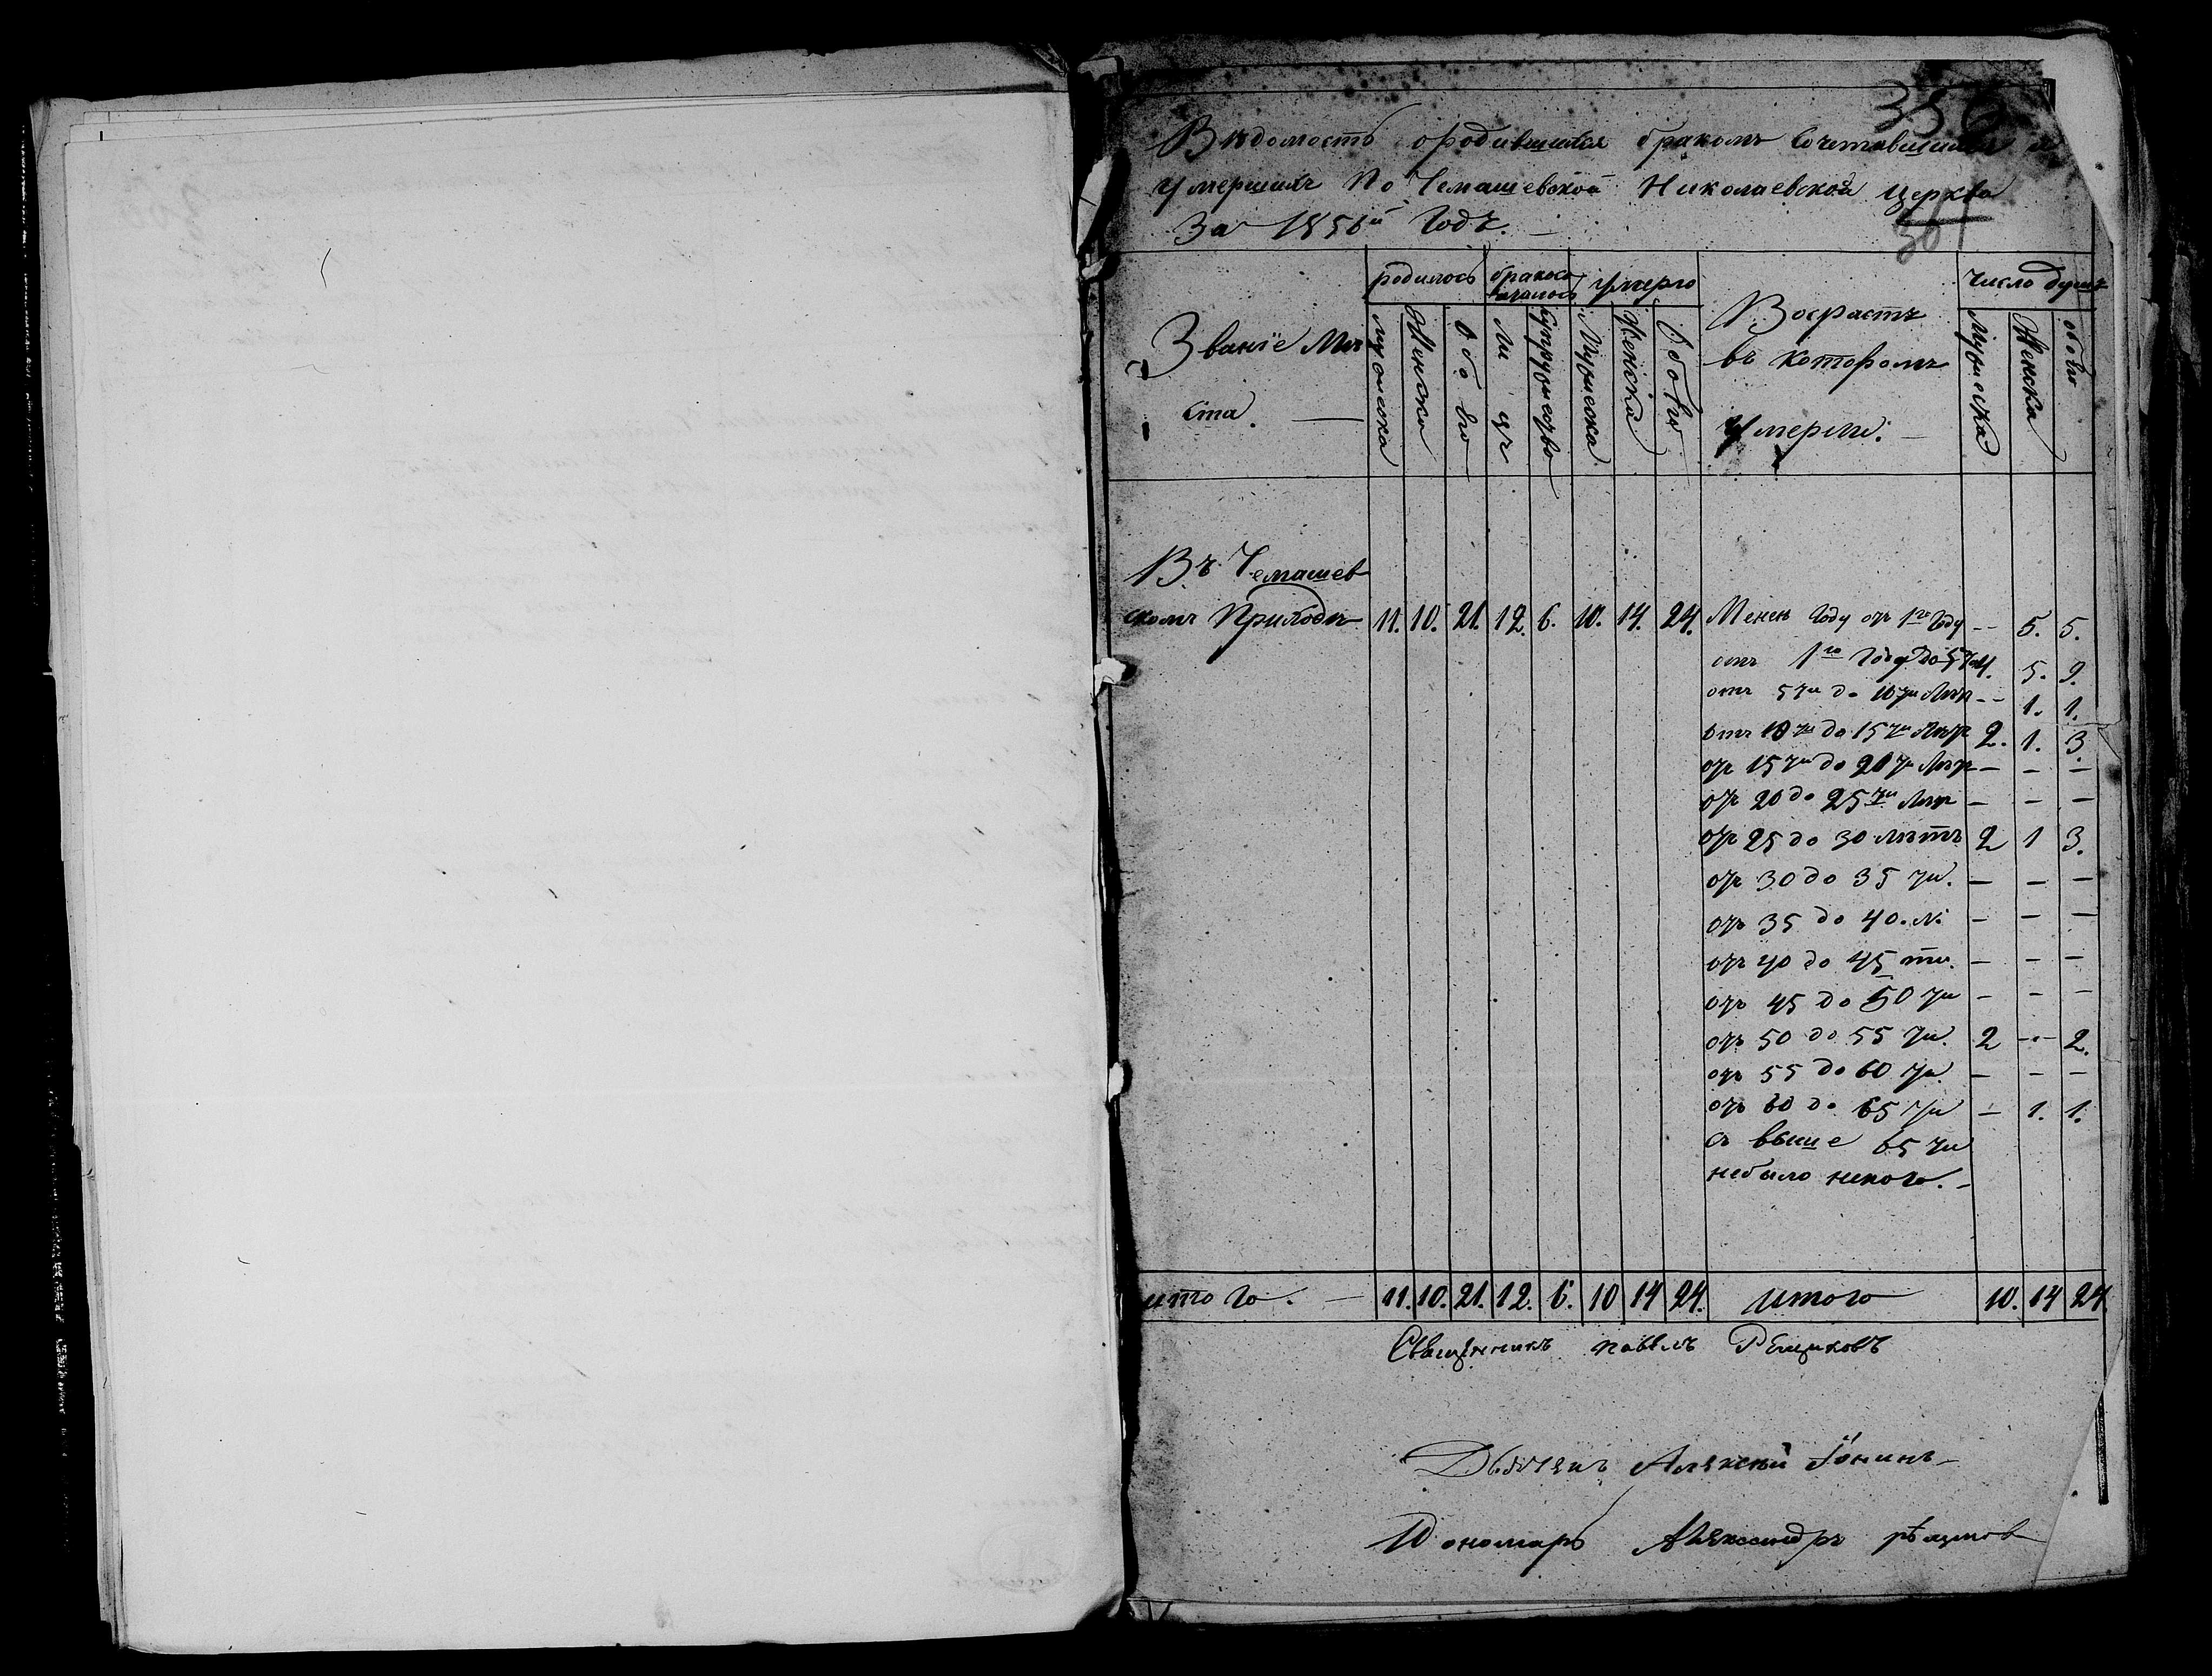 356
Вѣдомость ородившихся бракомъ Сочетавшихся и
умершихъ по Чемашевской Николаевской церква
За 1856й Годъ. —
361
Званіе Мѣ
ста. —
родилось
бракосо
умерло
мужеска
Женска
Обоего
Ли цъ
Супружество
Мужеска
Женска
Обоего
Возрастъ
въ которомъ
Умерли. —
число душъ
Мужеска
Женска
обоего
Въ Чемашев
скомъ Приходѣ 11. 10. 21. 12. 6. 10. 14. 24. Менѣе Году отъ 1го Году -- 5. 5.
отъ 1го Году до 5 4. 5. 9.
отъ 5ти до 10ти Лѣтъ -- 1. 1.
отъ 10ти до 15ти Лѣтъ 2. 1. 3
отъ 15ти до 20ти Лѣтъ — — —
отъ 20 до 25ти Лѣтъ — — —
отъ 25 до 30 лѣтъ 2 1 3.
отъ 30 до 35 ти. — — —
отъ 35 до 40. л. — — —
отъ 40 до 45 ти. — — —
отъ 45 до 50 ти — — —
отъ 50 до 55 ти. 2 -·- 2.
отъ 55 до 60 ти. — — —
отъ 60 до 65 ти — 1. 1.
съ выше 65 ти
небыло некого. —
итого. — 11. 10. 21. 12. 6. 10 14 24. итого 10. 14 24.
Священникъ павелъ Рещиковъ
Дьячекъ Алексѣй Іонинъ
Пономарь Александръ